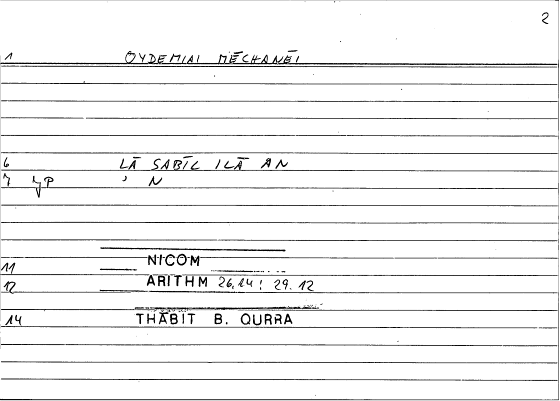 2
1 OYDEMIAI MĒCHANĒI
6 LĀ SABĪL ILĀ AN
7 ꜤP ʾ N
11 NICOM
12 ARITHM 26,14; 29.12
14 THĀBIT B. QURRA